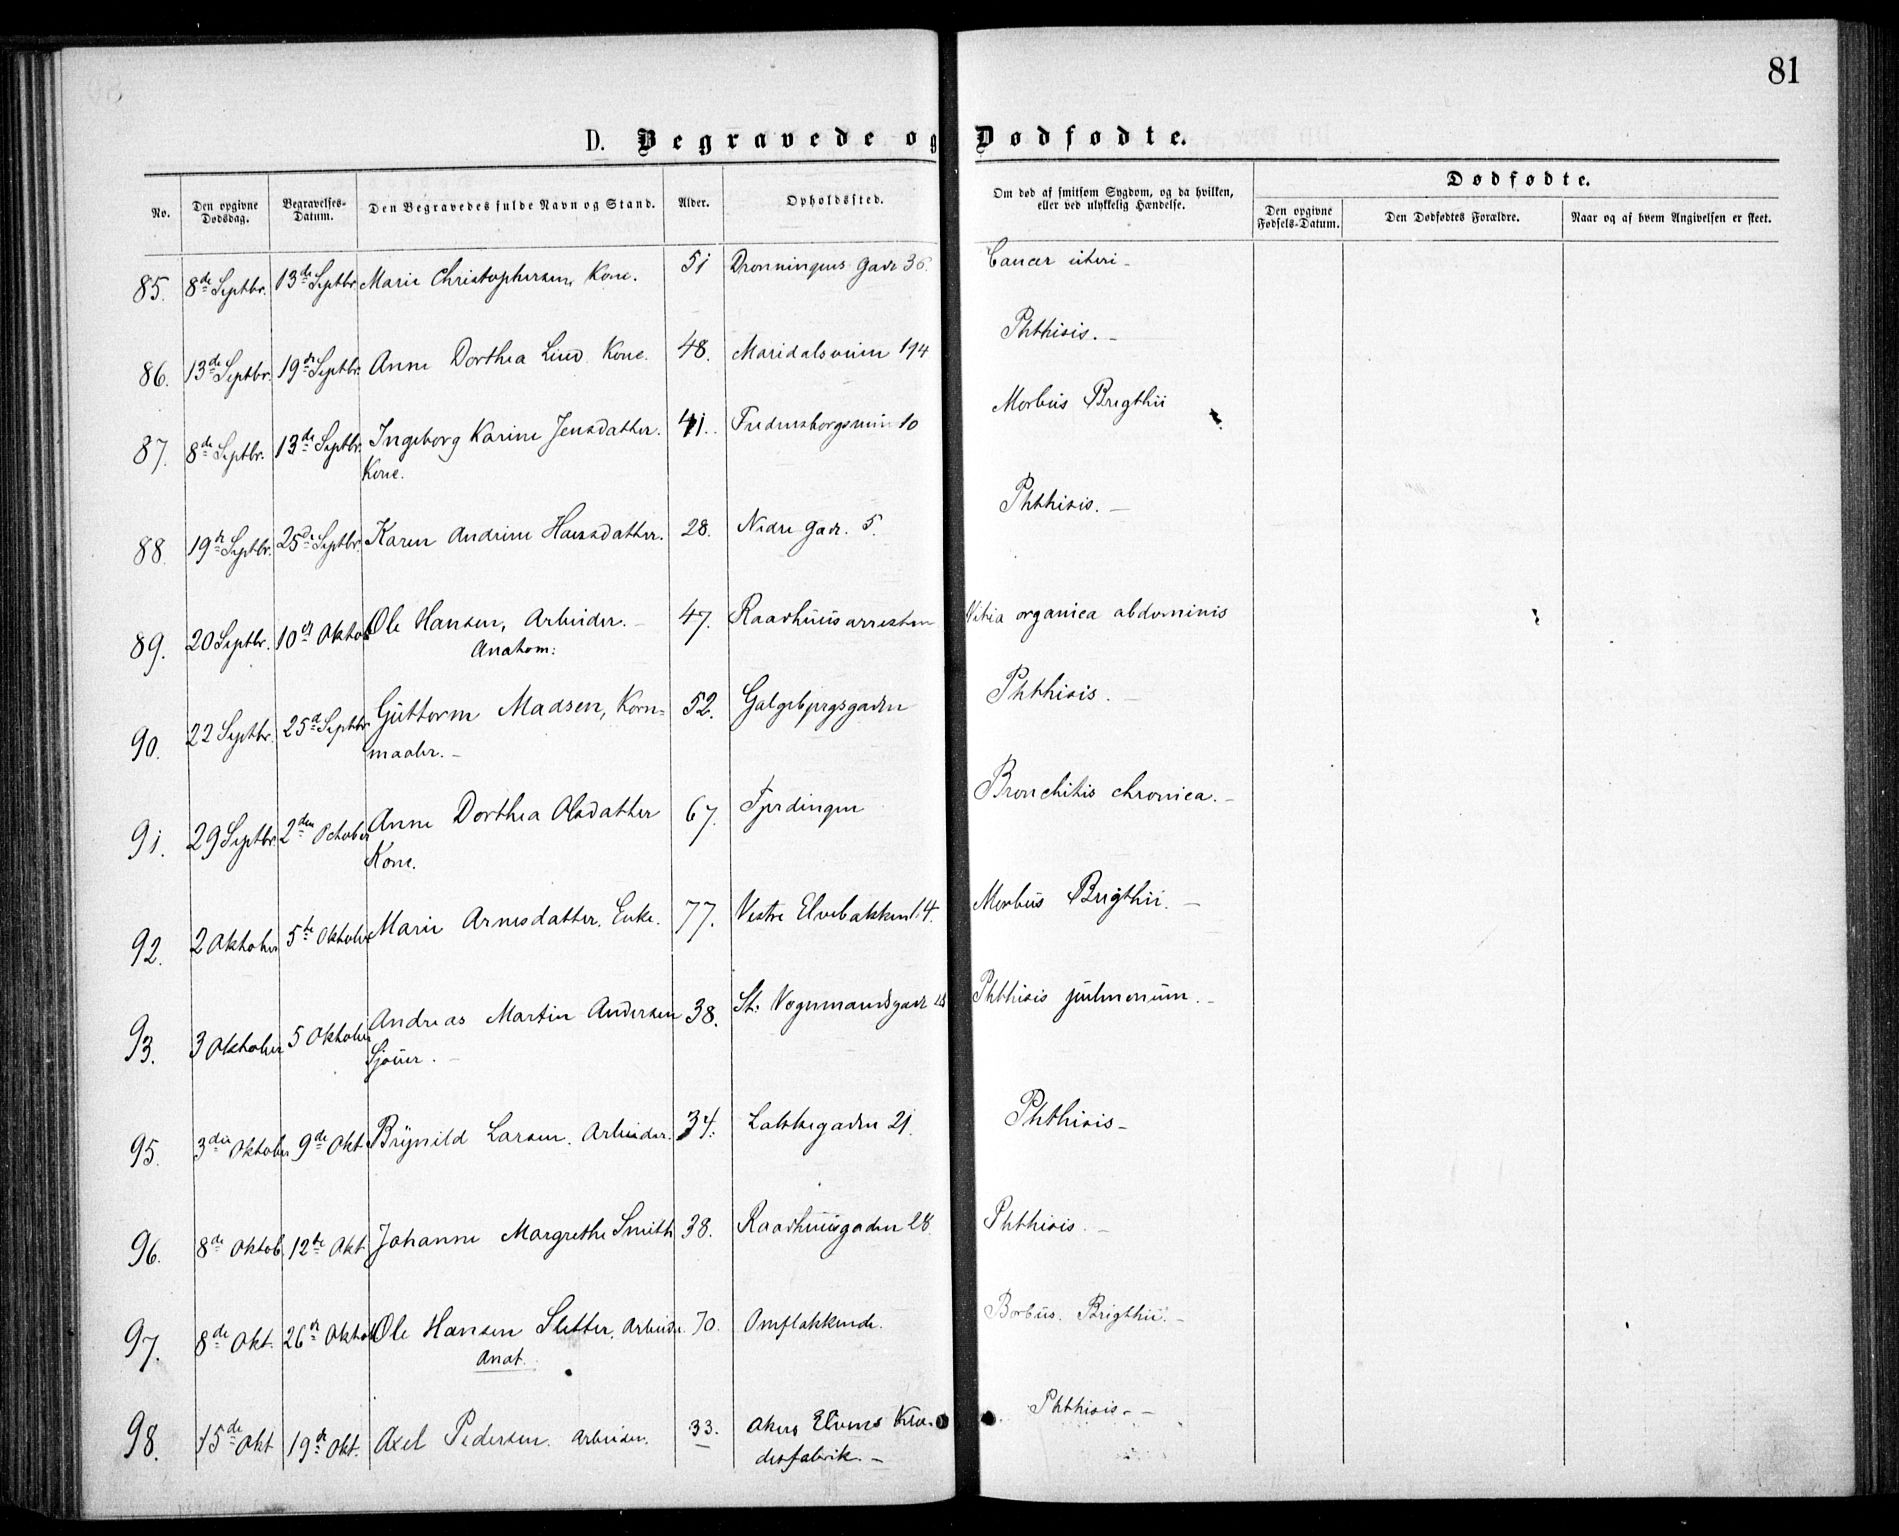 81
D. Begravede og Dødfødte.
No. Den opgivne Dødsdag. Begravelses-Datum. Den Begravedes fulde Navn og Stand. Alder. Opholdssted. Om død af smitsom Sygdom, og da hvilken, eller ved ulykkelig Hændelse. Dødfødte.
Den opgivne Fødsels-Datum. Den Dødfødtes Forældre. Naar og af hvem Angivelsen er skeet.
85. 8de Septbr. 13de Septbr. Marie Christophersen, Kone. 51 Dronningens Gade 36. Cancer uteri -
86. 13de Septbr. 19de Septbr. Anne Dorthea Lind. Kone. 48. Maridalsveien 194 Phthisis. -
87. 8de Septbr. 13de Septbr. Ingeborg Karine Jensdatter. 41. Fredensborgsveien 10 Morbus Brigthii
Kone.
88 19de Septbr. 25de Septbr. Karen Andrine Hansdatter. 28. Nedre Gade. 5. Phthisis. -
89. 20 Septbr. 10de Oktob Ole Hansen, Arbeider. - 47. Raadhuusarresten Vitia organica abdominis
Anatom:
90. 22 Septbr. 25d Septbr Guttorm Madsen, Korn- 52. Galgebjergsgaden Phthisis. -
maaler. -
91. 29 Septbr. 2den October Anne Dorthea Olsdatter 67. Fjerdingen Bronchitis chronica. -
Kone.
92. 2 Oktober 5te Oktober Marie Arnesdatter. Enke. 77. Vestre Elvebakken 14. Morbus Brigthii. -
93. 3 Oktober 5 Oktober Andreas Martin Andersen 38. St. Vognmandsgade Phthisis pulmonum. -
Sjouer. -
95. 3die Oktober 9de Okt Brynild Larsen. Arbeider. 34. Lakkegaden 21. Phthisis -
96. 8de Oktob. 12te Okt Johanne Margrethe Smith 38. Raadhuusgaden 28. Phthisis. -
97. 8de Okt. 26de Oktob Ole Hansen Sletter, Arbeider. 70. Omflakkende. Borbus. Brigthii. -
Anat.
98. 15de Okt 19de Okt. Axel Pedersen. Arbeider. 33. Akers Elvens Klæ- Phthisis. -
desfabrik. -